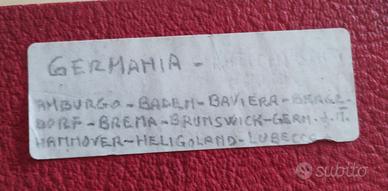 GERMANIA -
AMBURGO - BADEN - BAVIERA - BERGE-
DORF - BREMA - BRUNSWICK - GERM. d. N.
HANNOVER - HELIGOLAND - LUBECCA
subito